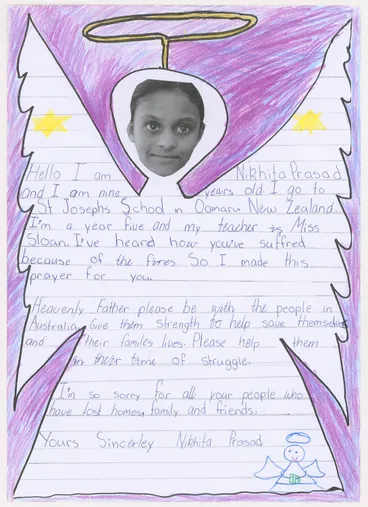 Hello I am Nikhita Prasad
and I am nine years old I go to
St Josephs School in Oamaru New Zealand
I'm a year five and my teacher is Miss
Sloan. I've heard how you've suffred
because of the fires So I made this
prayer for you.
Heavenly Father please be with the people in
Australia, Give them strength to help save themselves
and their familes lives. Please help them
in their time of struggle.
I'm so sorry for all your people who
have lost homes, family and friends.
Yours Sincerley Nikhita Prasad